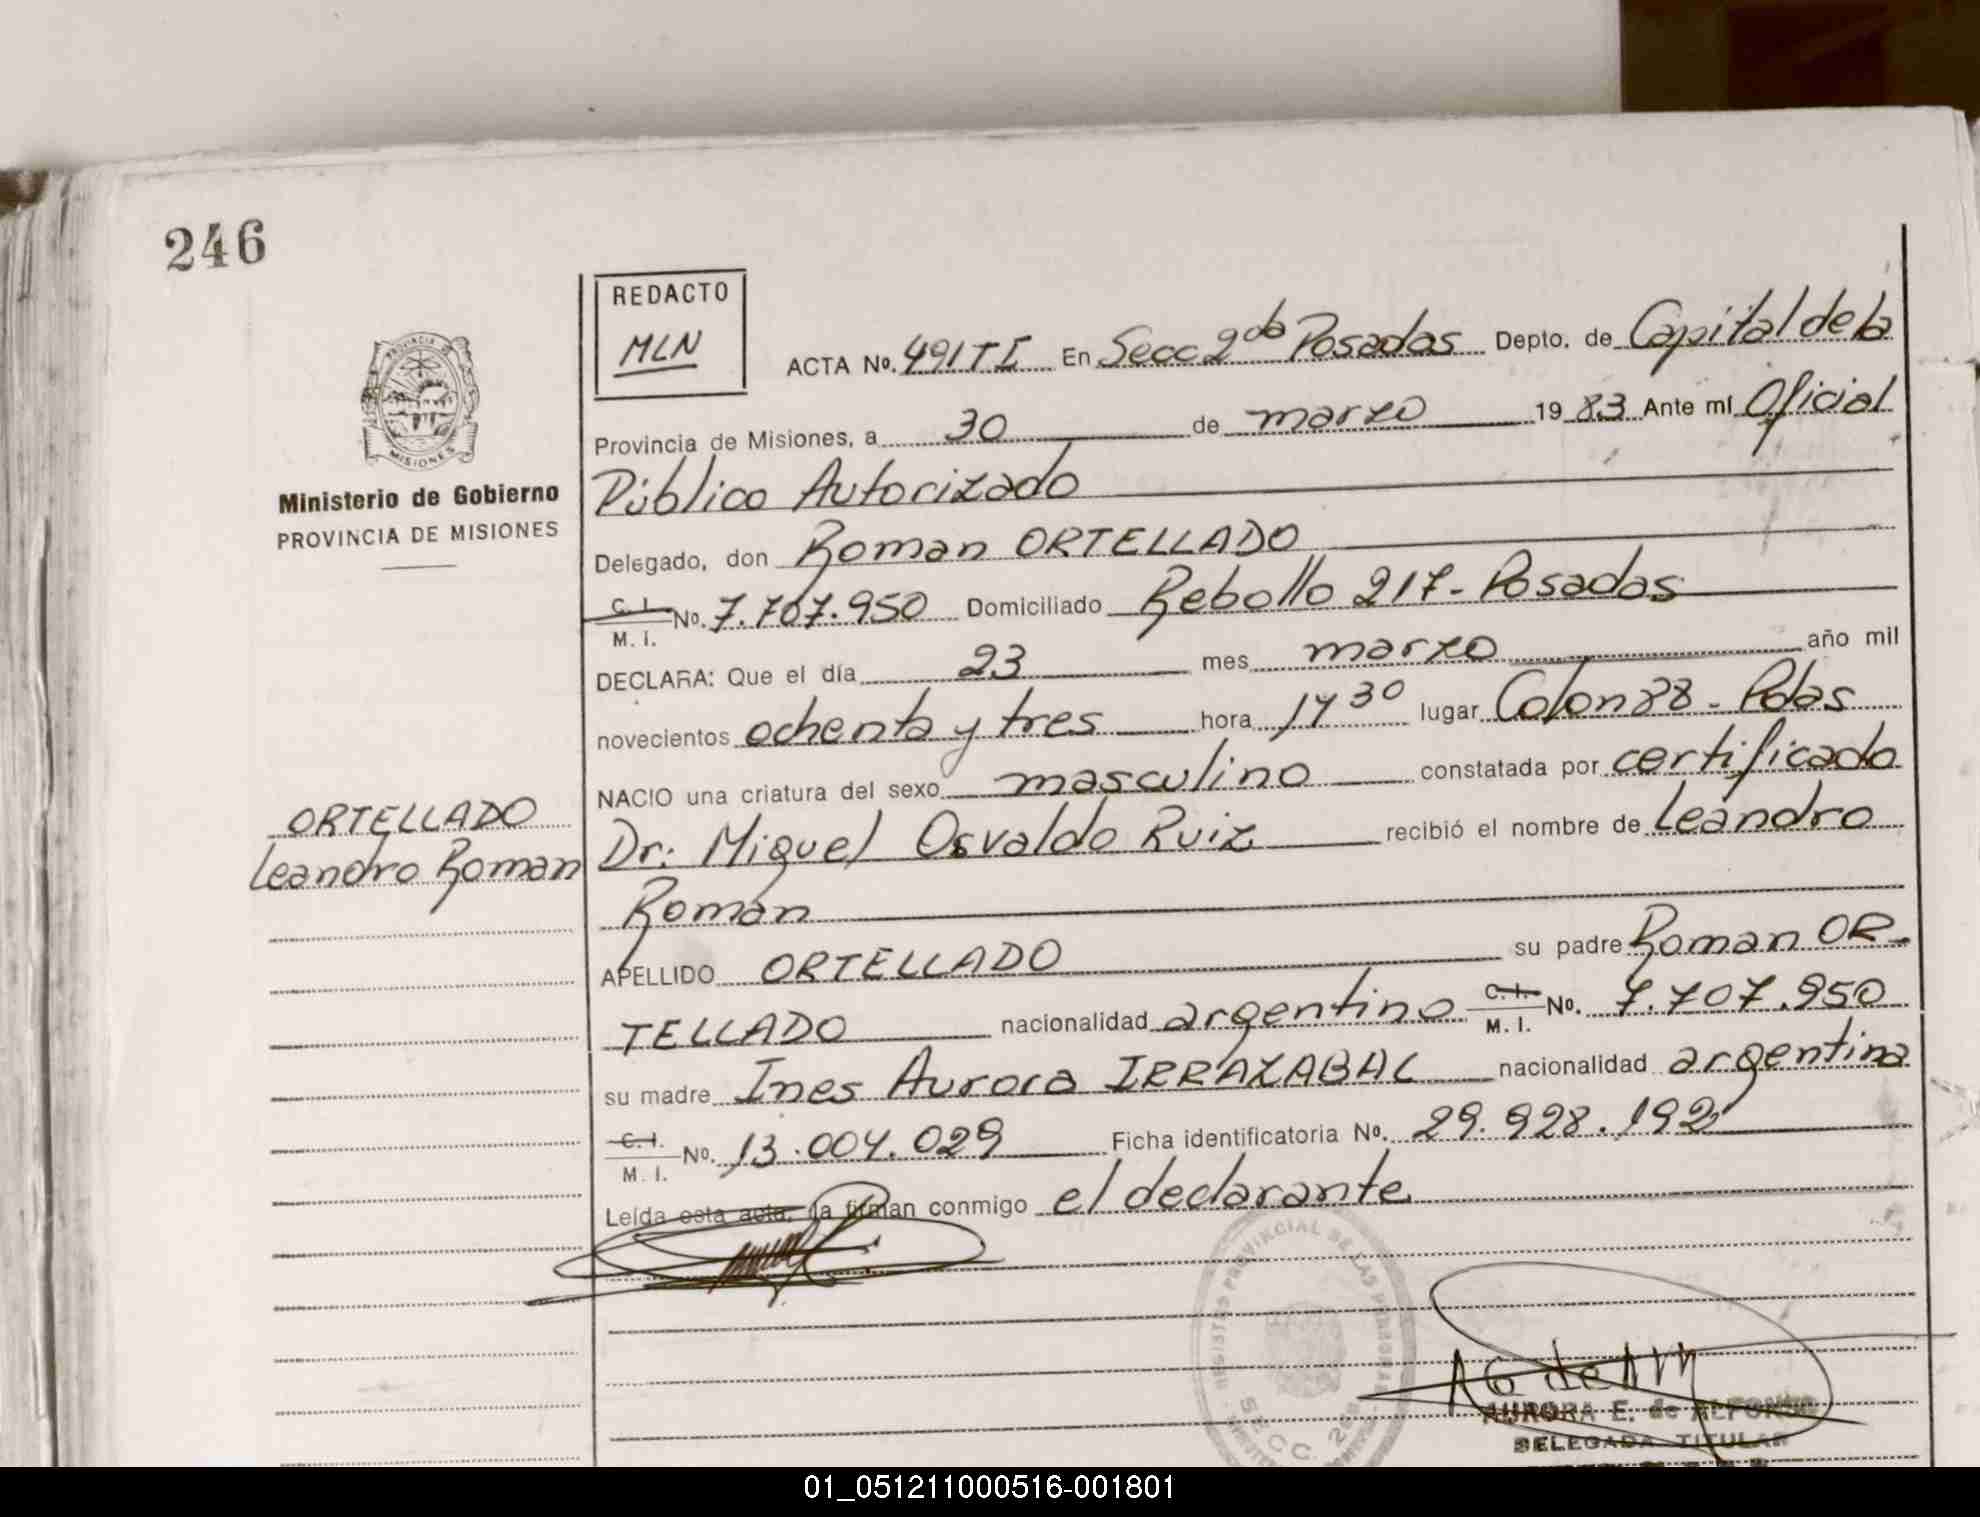 246
REDACTO
MLN
PROVINCIA DE
MISIONES
Ministerio de Gobierno
PROVINCIA DE MISIONES
ACTA Nº. 491TI En Secc 2da Posadas Depto. de Capital de la
Provincia de Misiones, a 30 de marzo 1983 Ante mí Oficial
Público Autorizado
Delegado, don Roman ORTELLADO
C. I. M. I. No. 7.707.950 Domiciliado Rebollo 217 - Posadas
DECLARA: Que el día 23 mes marzo año mil
novecientos ochenta y tres hora 14 30 lugar Colon 88 - Pdas
NACIO una criatura del sexo masculino constatada por certificado
Dr: Miguel Osvaldo Ruiz recibió el nombre de Leandro
Román
ORTELLADO
Leandro Roman
APELLIDO ORTELLADO su padre Roman OR-
TELLADO nacionalidad argentino C. I. M. I. Nº. 7.707.950
su madre Ines Aurora IRRAZABAL nacionalidad argentina
C. I. M. I. Nº. 13.004.029 Ficha identificatoria Nº. 29.928.192
Leída esta acta, la firman conmigo el declarante
REGISTRO PROVINCIAL DE LAS PERSONAS
SECC. 2da
AURORA E. de ALFONSO
DELEGADA TITULAR
01_051211000516-001801